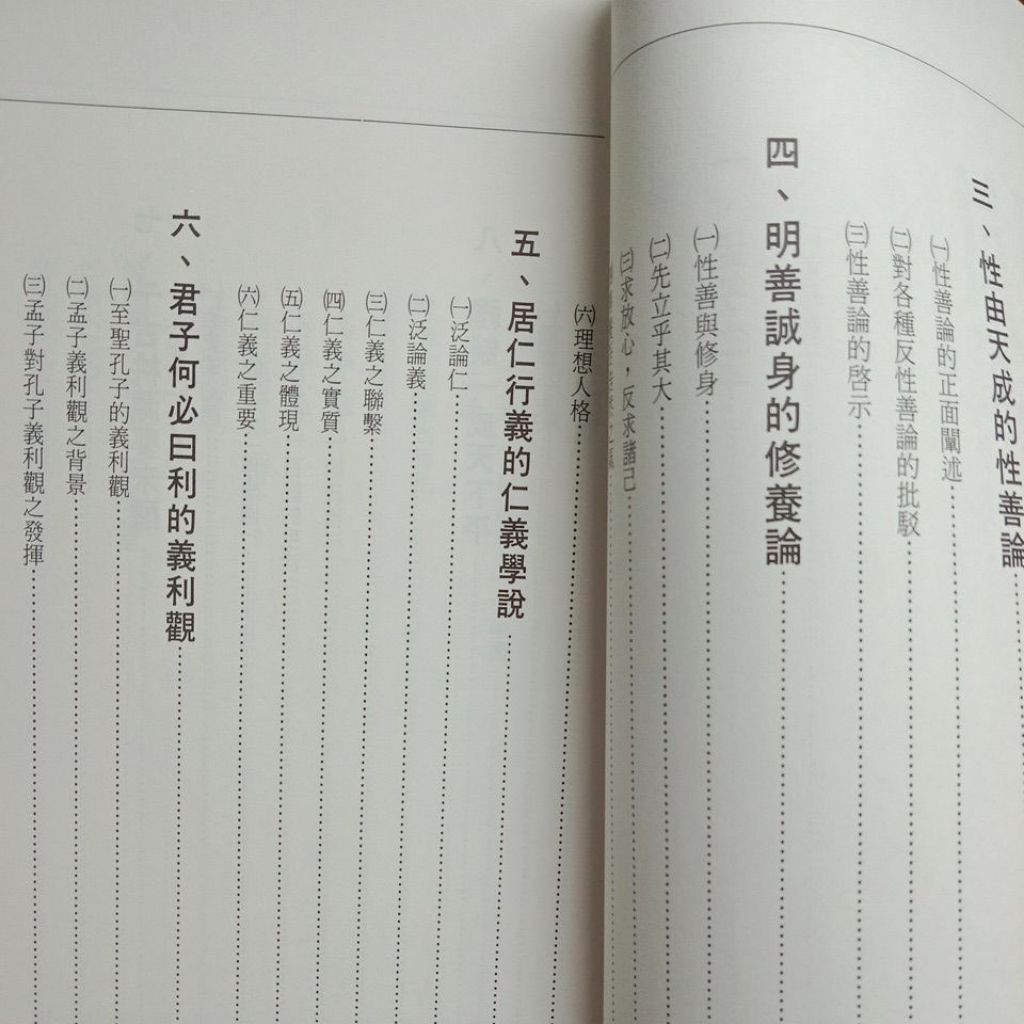 三、性由天成的性善論
㈠性善論的正面闡述
㈡對各種反性善論的批駁
㈢性善論的啓示
四、明善誠身的修養論
㈠性善與修身
㈡先立乎其大
㈢求放心，反求諸己
㈥理想人格
五、居仁行義的仁義學說
㈠泛論仁
㈡泛論義
㈢仁義之聯繫
㈣仁義之實質
㈤仁義之體現
㈥仁義之重要
六、君子何必曰利的義利觀
㈠至聖孔子的義利觀
㈡孟子義利觀之背景
㈢孟子對孔子義利觀之發揮